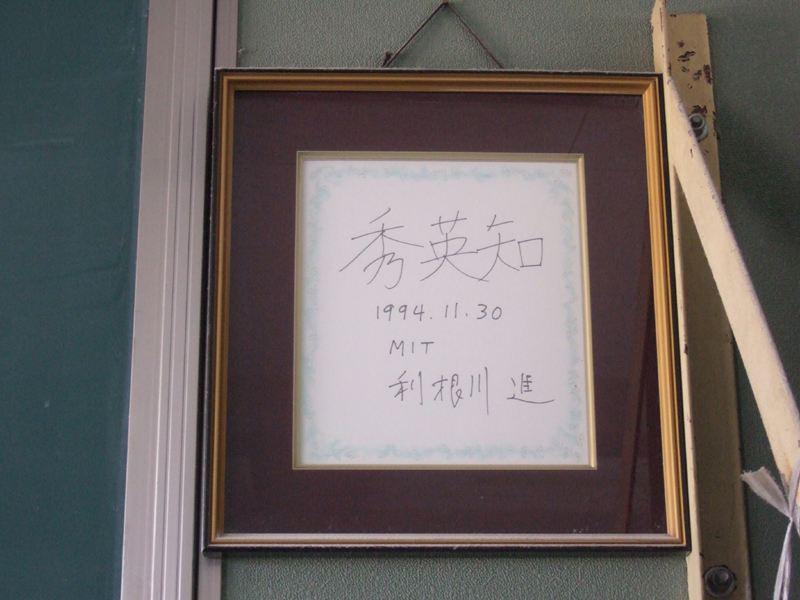 秀英知
1994.11.30
MIT
利根川 進